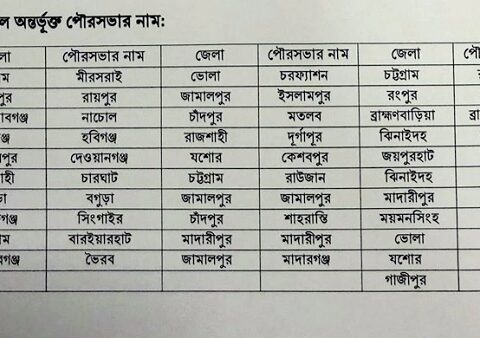 অন্তর্ভূক্ত পৌরসভার নাম:
পৌরসভার নাম জেলা পৌরসভার নাম জেলা
মীরসরাই ভোলা চরফ্যাশন চট্টগ্রাম
রায়পুর জামালপুর ইসলামপুর রংপুর
নাচোল চাঁদপুর মতলব ব্রাহ্মণবাড়িয়া
হবিগঞ্জ রাজশাহী দূর্গাপুর ঝিনাইদহ
দেওয়ানগঞ্জ যশোর কেশবপুর জয়পুরহাট
চারঘাট চট্টগ্রাম রাউজান ঝিনাইদহ
বগুড়া জামালপুর জামালপুর মাদারীপুর
সিংগাইর চাঁদপুর শাহরাস্তি ময়মনসিংহ
বারইয়ারহাট মাদারীপুর মাদারীপুর ভোলা
ভৈরব জামালপুর মাদারগঞ্জ যশোর
গাজীপুর